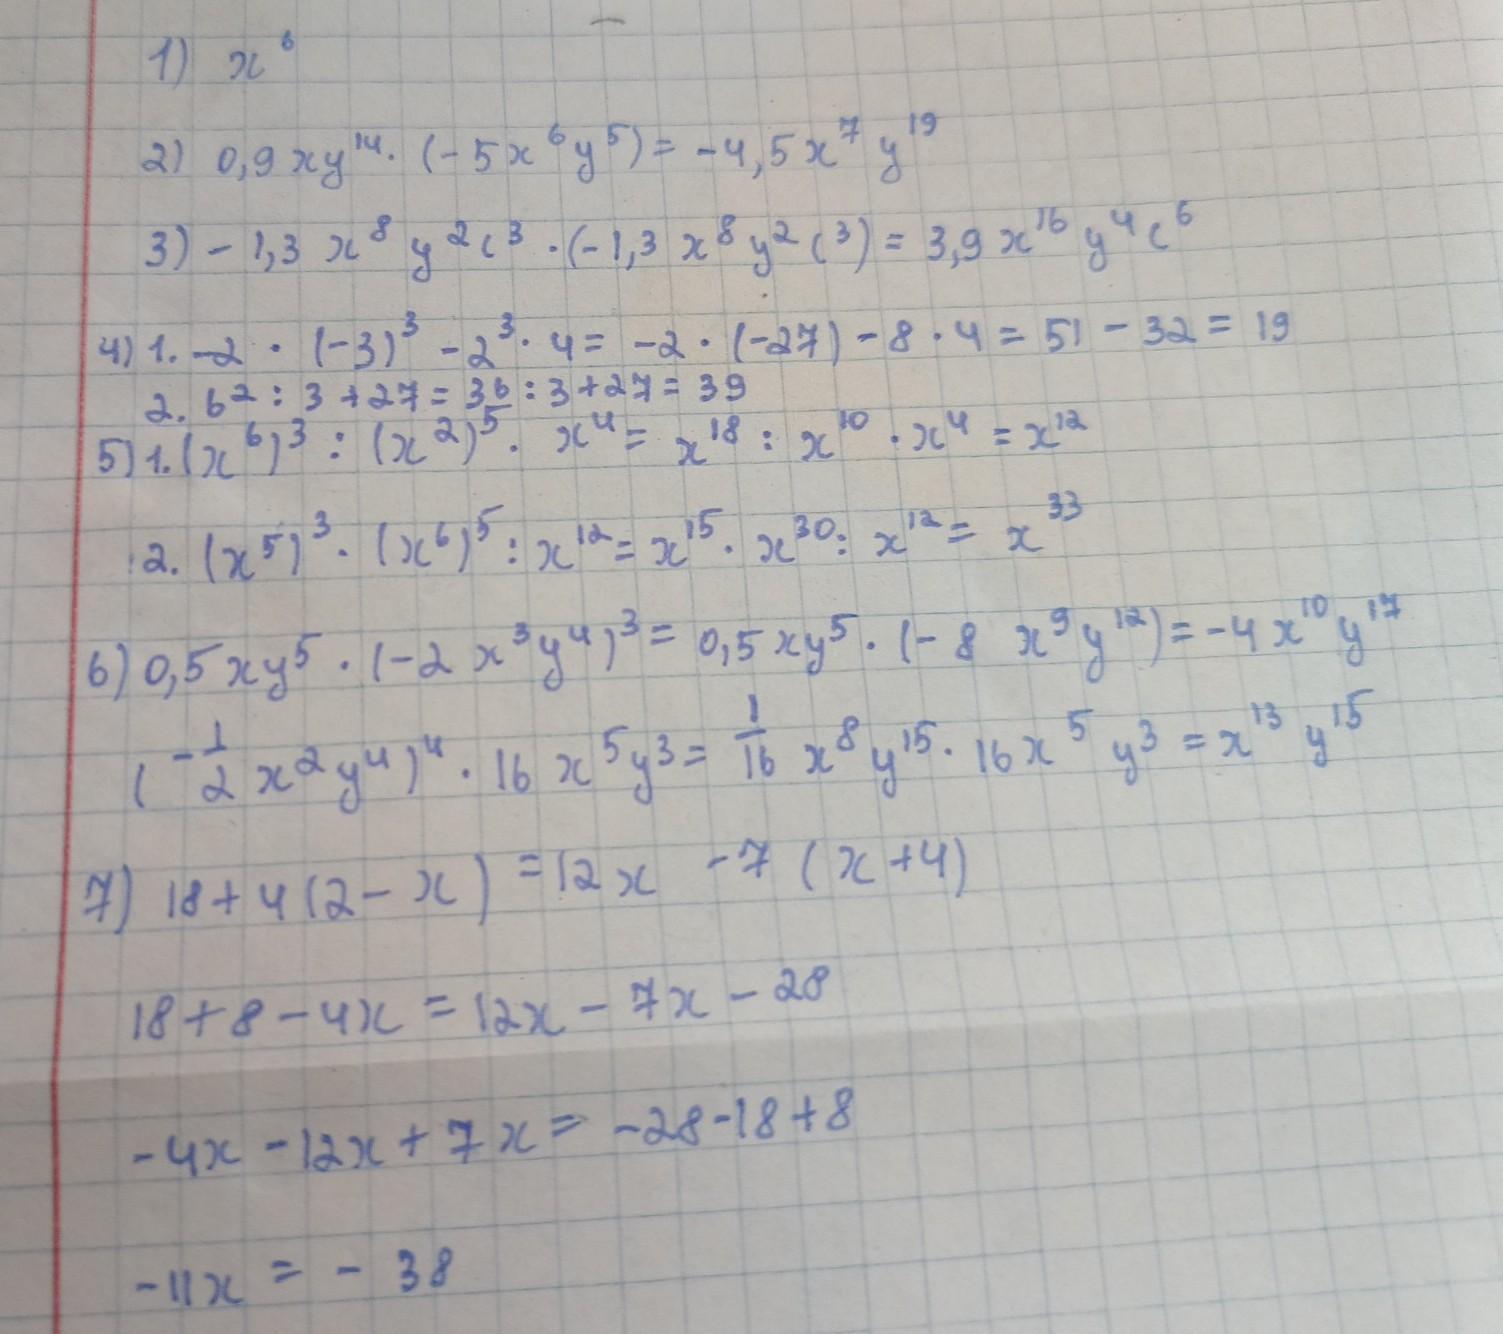 1) x⁶
2) 0,9xy¹⁴ · (-5x⁶y⁵) = -4,5x⁷y¹⁹
3) -1,3x⁸y²c³ · (-1,3x⁸y²c³) = 3,9x¹⁶y⁴c⁶
4) 1. -2 · (-3)³ - 2³ · 4 = -2 · (-27) - 8 · 4 = 51 - 32 = 19
2. 6² : 3 + 27 = 36 : 3 + 27 = 39
5) 1. (x⁶)³ : (x²)⁵ · x⁴ = x¹⁸ : x¹⁰ · x⁴ = x¹²
2. (x⁵)³ · (x⁶)⁵ : x¹² = x¹⁵ · x³⁰ : x¹² = x³³
6) 0,5xy⁵ · (-2x³y⁴)³ = 0,5xy⁵ · (-8x⁹y¹²) = -4x¹⁰y¹⁷
(-1/2 x²y⁴)⁴ · 16x⁵y³ = 1/16 x⁸y¹⁵ · 16x⁵y³ = x¹³y¹⁵
7) 18 + 4(2 - x) = 12x - 7(x + 4)
18 + 8 - 4x = 12x - 7x - 28
-4x - 12x + 7x = -28 - 18 + 8
-11x = -38